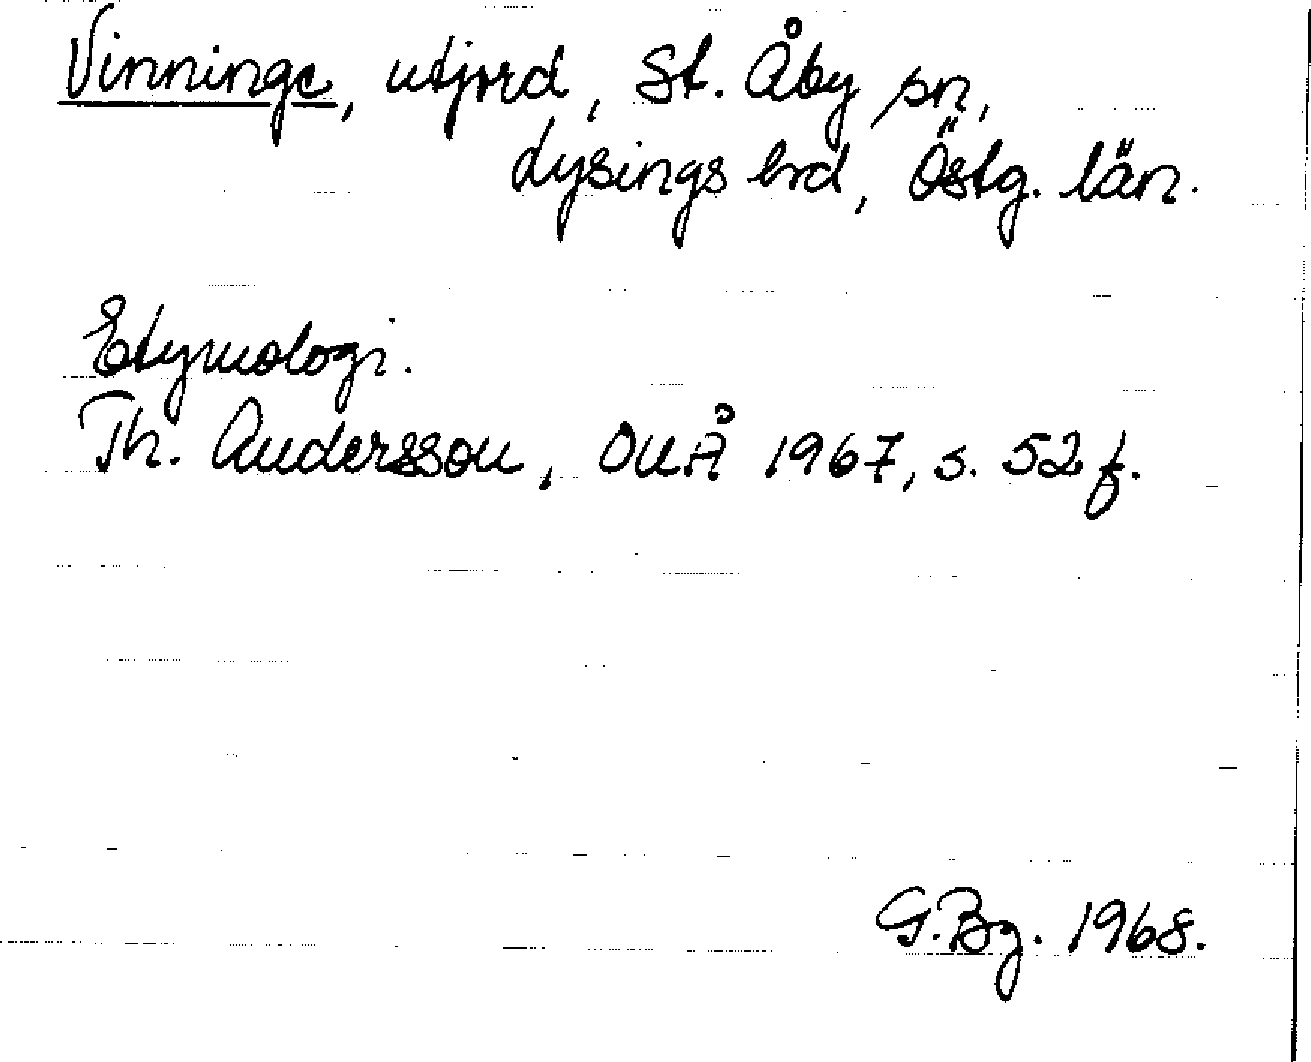 Vinninge, utjord, St. Åby sn,
Lysings hrd, Östg. län.
Etymologi.
Th. Andersson, OUÅ 1967, s. 52 f.
G.Bg. 1968.